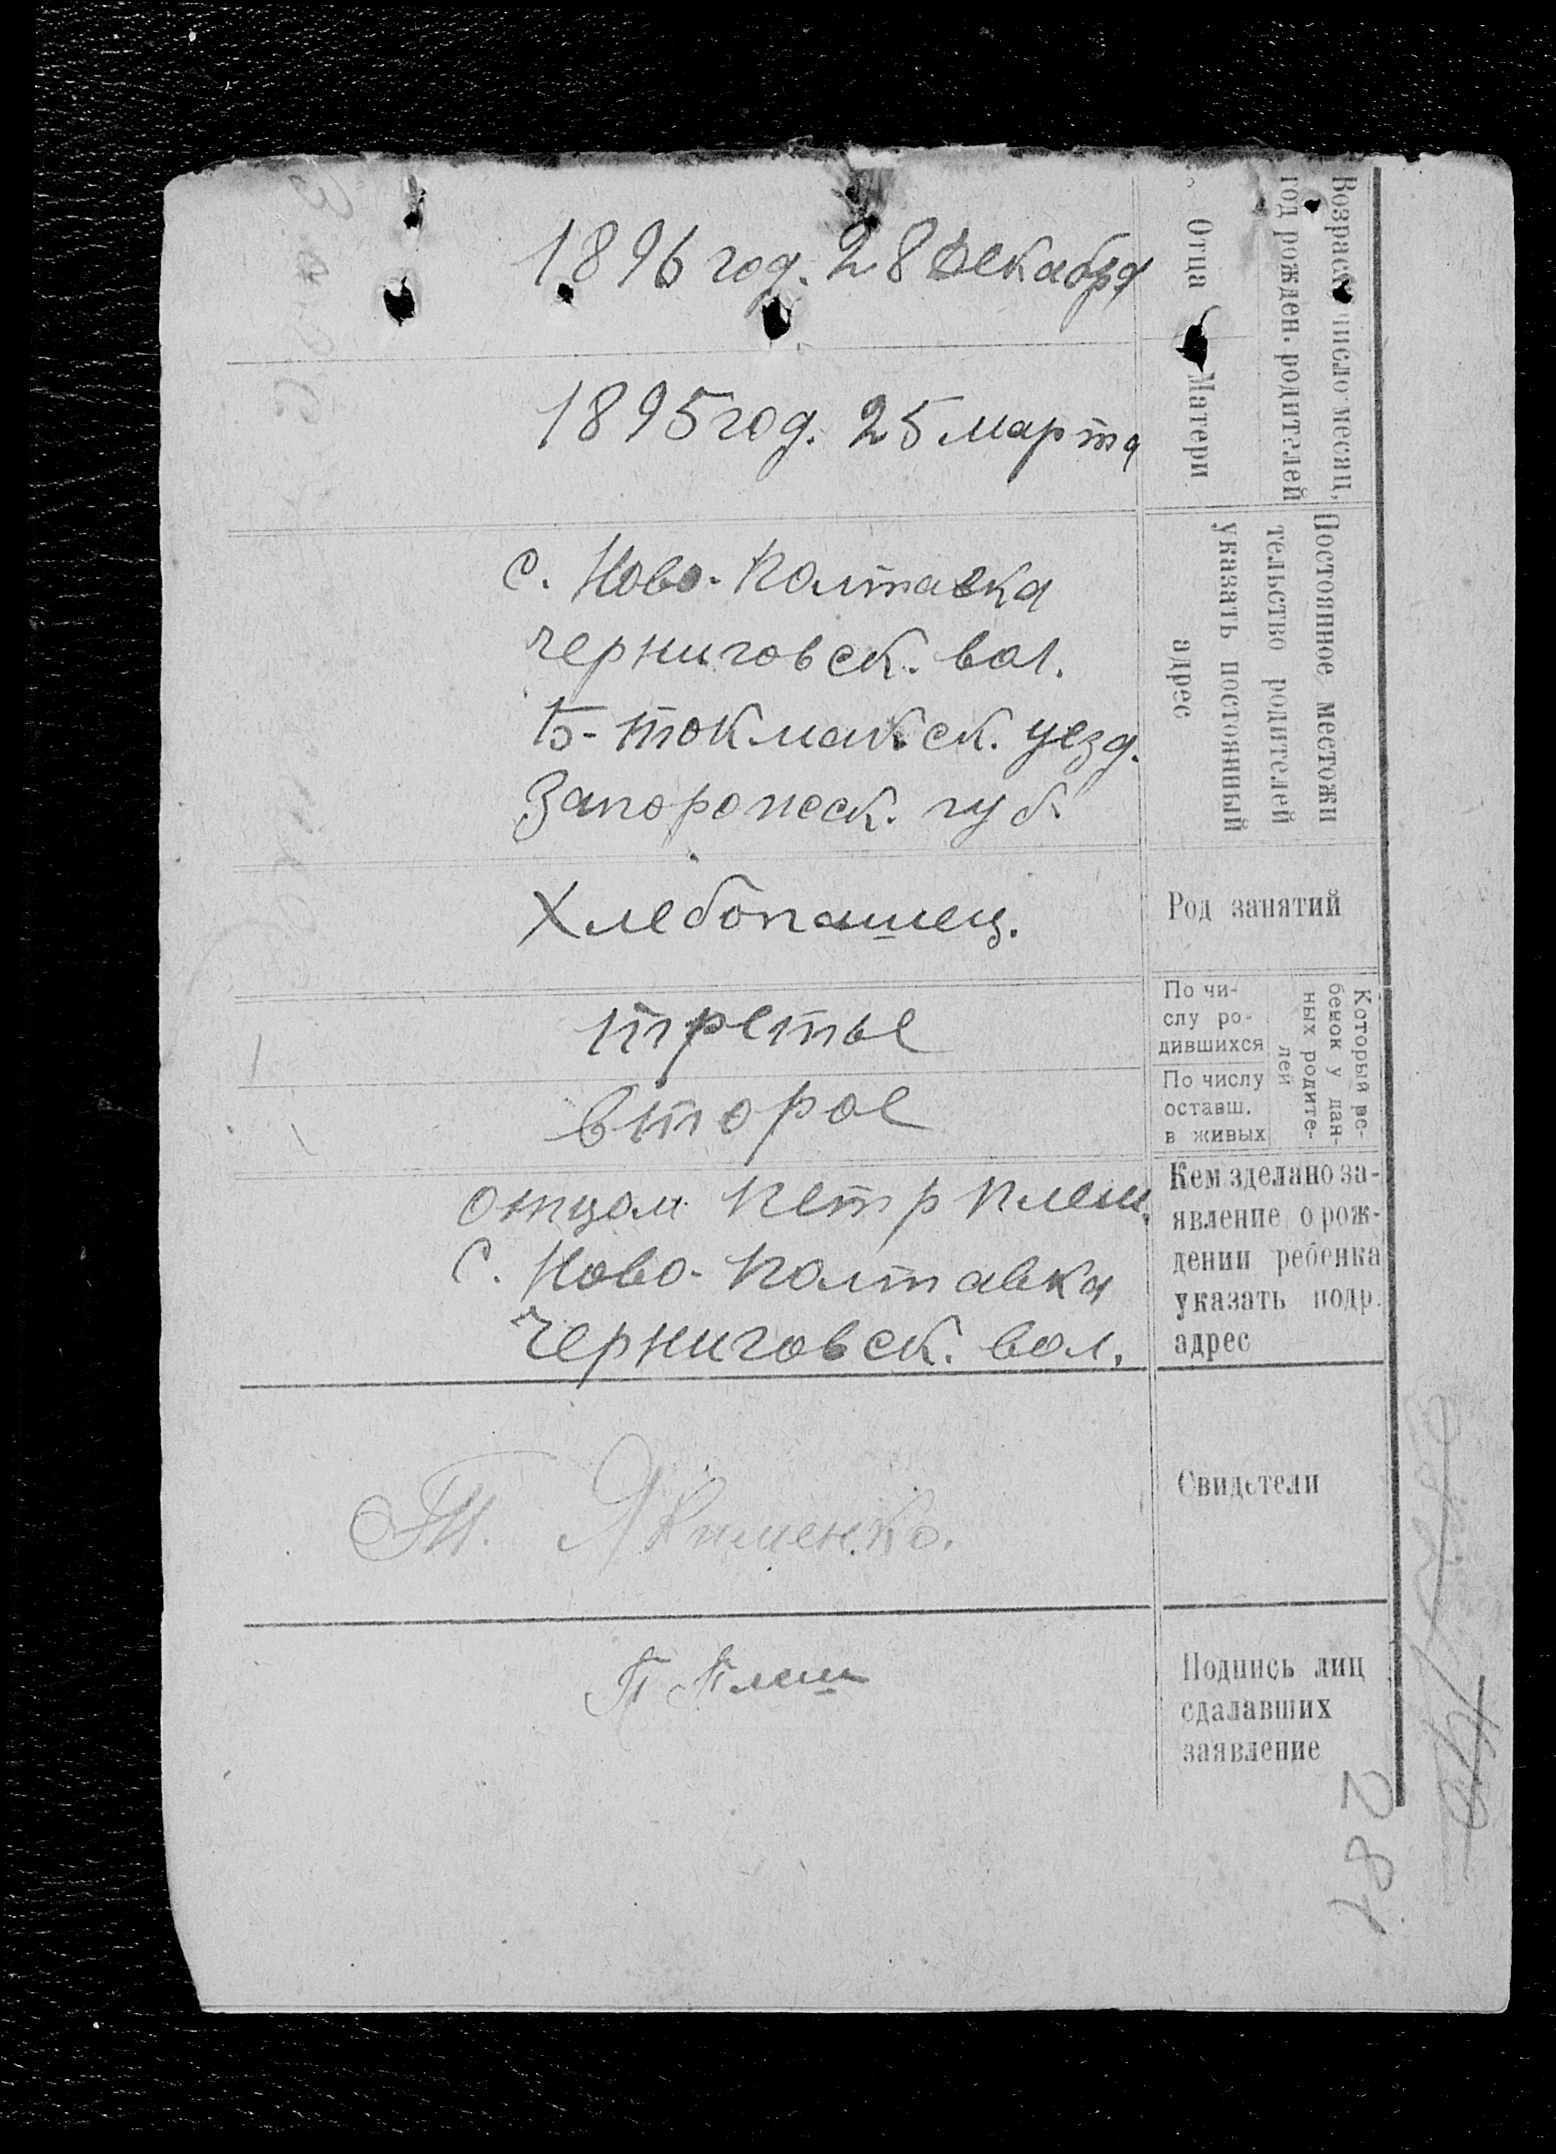 Возраст число месяц,
год рожден. родителей
Отца
1896 год. 28 декабря
Матери
1895 год. 25 марта
Постоянное местожи
тельство родителей
указать постоянный
адрес
с. Ново-Полтавка
черниговск. вол.
Б-токмакск. уезд.
Запорожск. губ.
Род занятий
Хлебопашец.
Который ре-
бенок у дан-
ных родите-
лей
По чи-
слу ро-
дившихся
третье
По числу
оставш.
в живых
второе
Кем зделано за-
явление о рож-
дении ребенка
указать подр.
адрес
отцом Петр Плеш.
с. Ново-Полтавка
Черниговск. вол.
Свидетели
Якименко.
Подпись лиц
сдалавших
заявление
П Плеш